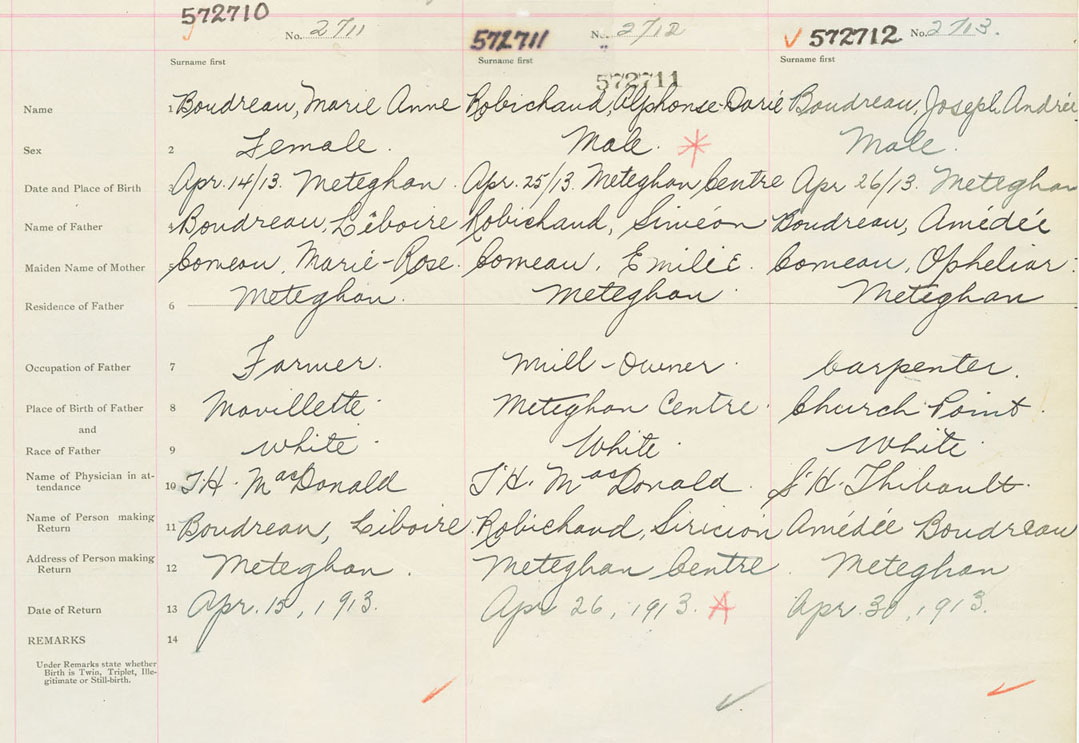 572710
No. 2711
572711
No. 2712
572712
No. 2713.
Surname first
Surname first
Surname first
572711
Name 1 Boudreau, Marie Anne Robichaud, Alphonse Darié Boudreau, Joseph Andrée
Sex 2 Female. Male. Male.
Date and Place of Birth 3 Apr. 14/13. Meteghan. Apr. 25/13. Meteghan Centre Apr 26/13. Meteghan
Name of Father 4 Boudreau, Liboire Robichaud, Siméon Boudreau, Amédée
Maiden Name of Mother 5 Comeau, Marie-Rose. Comeau, Emilie. Comeau, Opheliar.
Residence of Father 6 Meteghan. Meteghan. Meteghan
Occupation of Father 7 Farmer. Mill-Owner. Carpenter.
Place of Birth of Father 8 Mavillette. Meteghan Centre. Church Point.
and
Race of Father 9 White. White. White.
Name of Physician in at-
tendance 10 T.H. MacDonald T.H. MacDonald. H. Thibault.
Name of Person making
Return 11 Boudreau, Liboire. Robichaud, Amédée Boudreau
Address of Person making
Return 12 Meteghan. Meteghan Centre. Meteghan
Date of Return 13 Apr. 15, 1913. Apr 26, 1913. A Apr. 30, 1913.
REMARKS 14
Under Remarks state whether
Birth is Twin, Triplet, Ille-
gitimate or Still-birth.